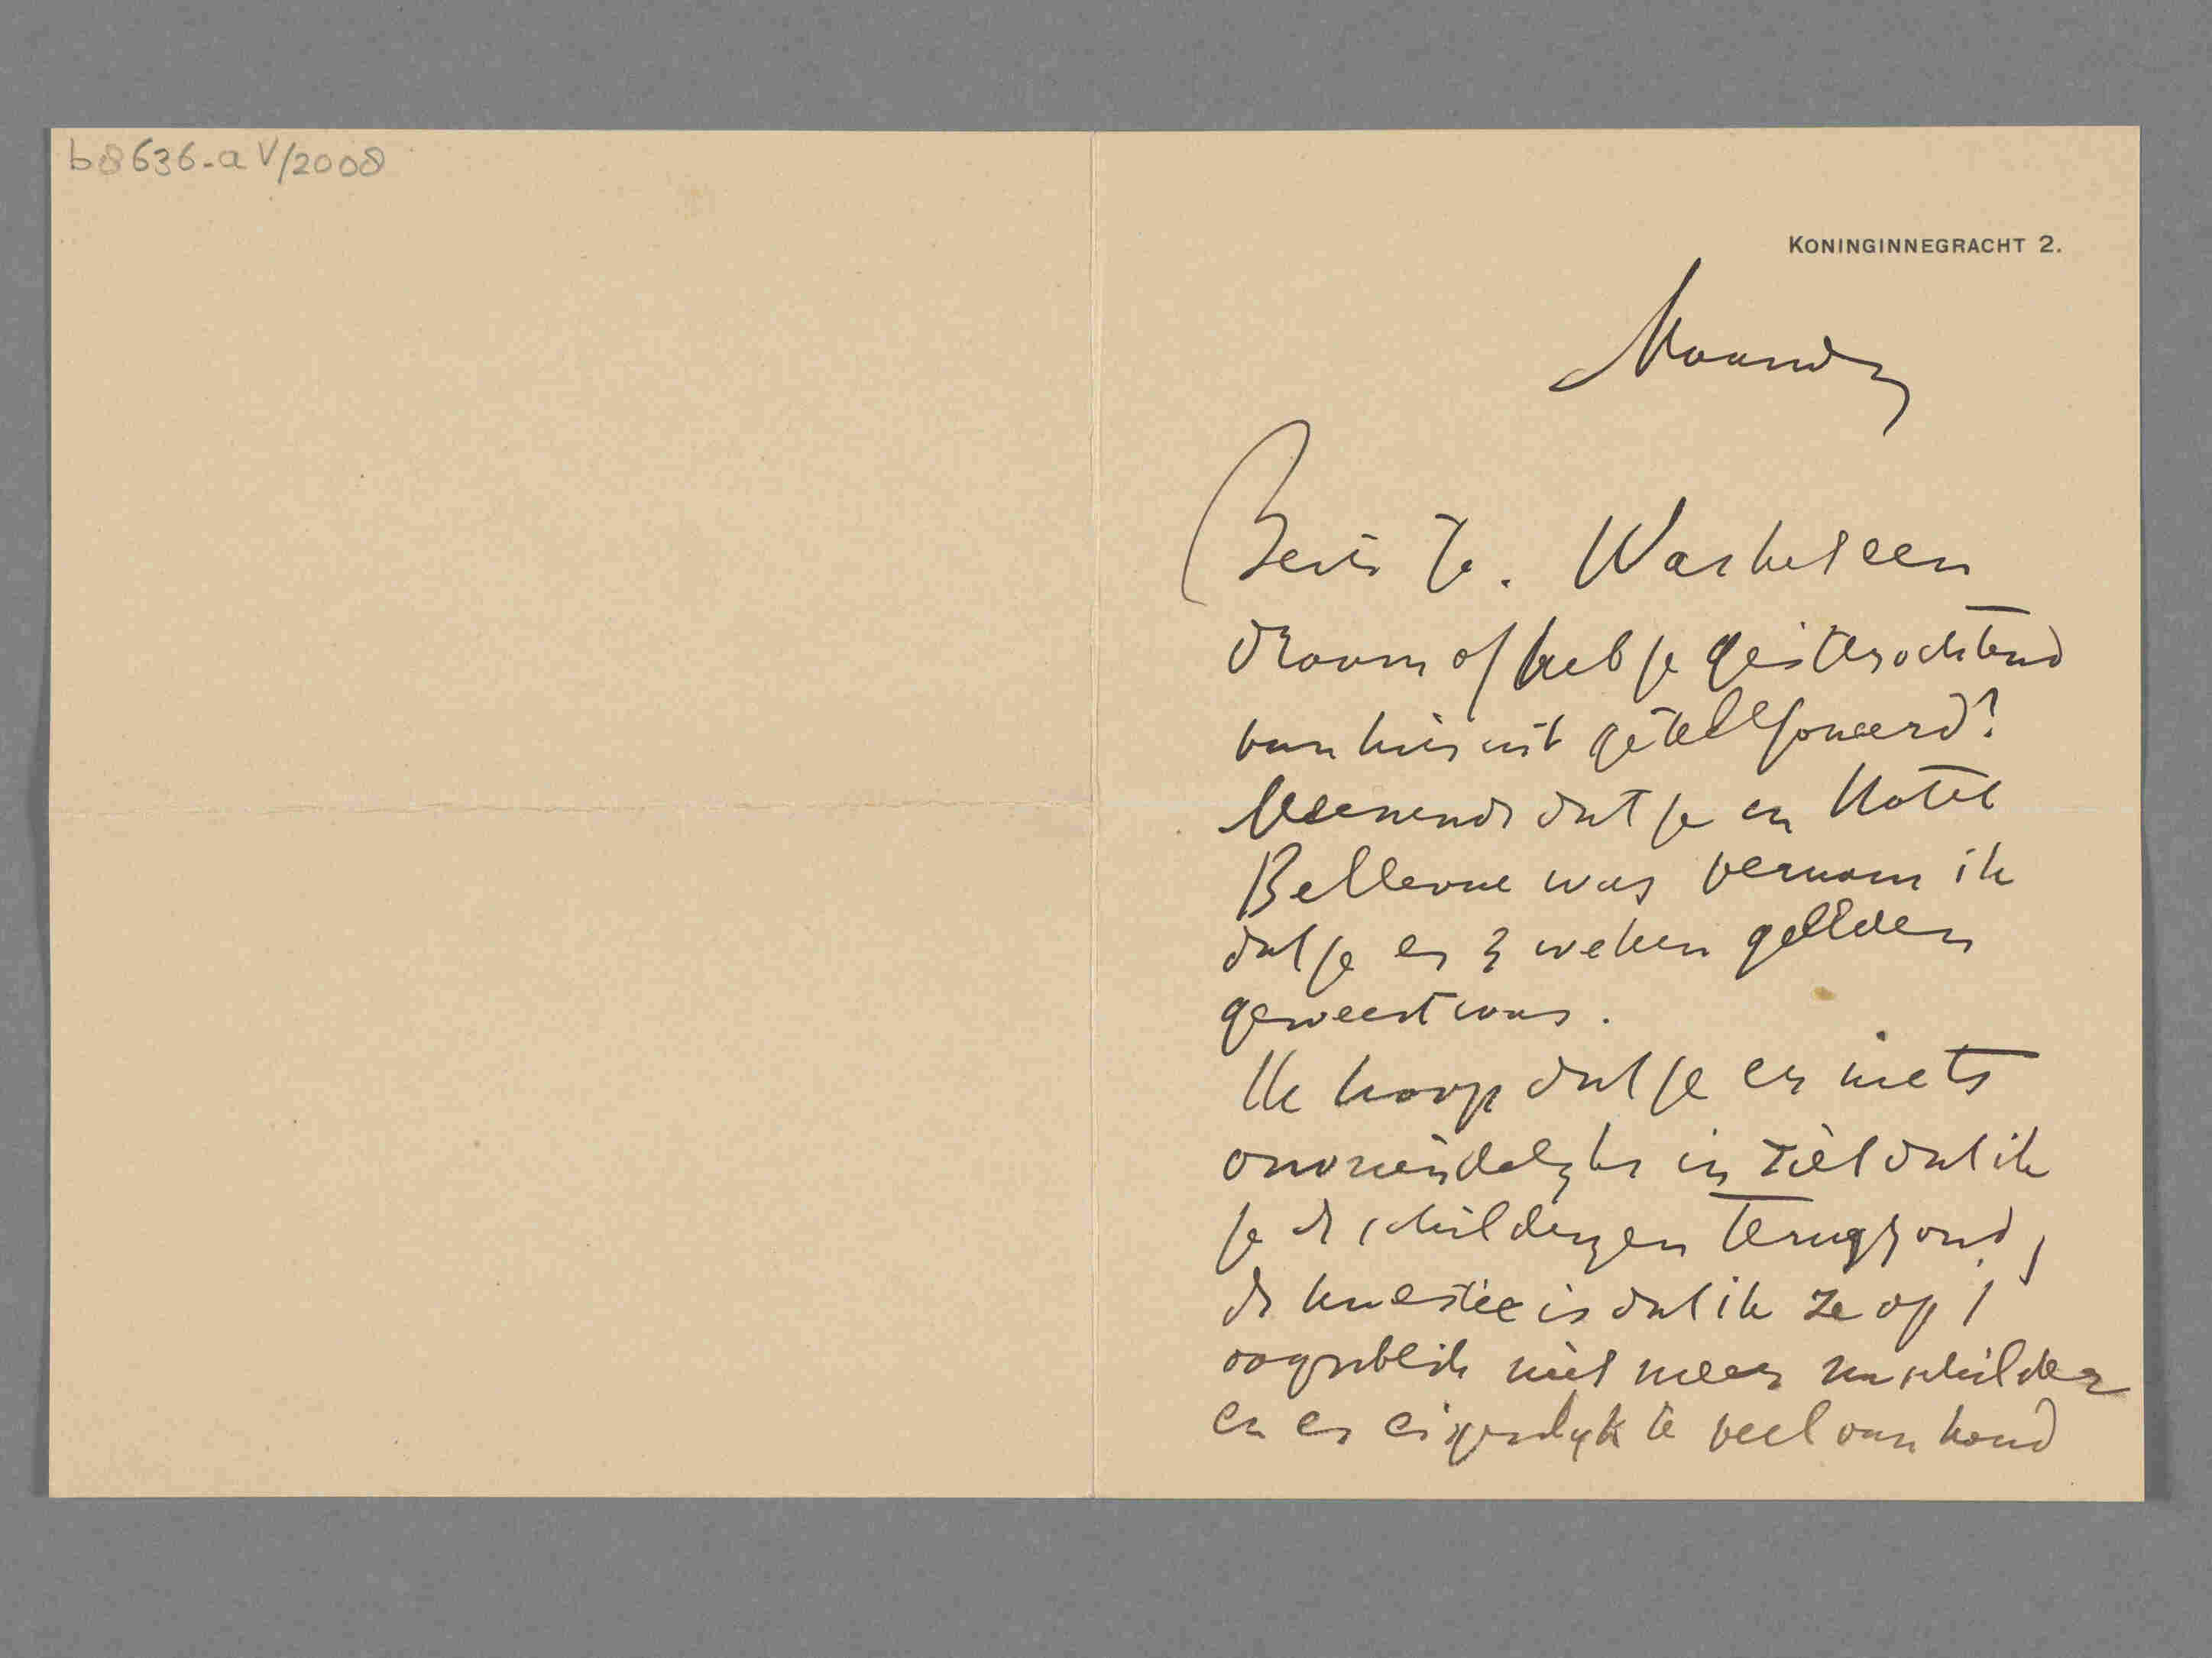 b8636-a V/2008
KONINGINNEGRACHT 2.
Maandag
Beste Jo. Was het een
droom of heb je gisterochtend
van hier uit getelefoneerd?
Meenende dat je in Hotel
Bellevue was vernam ik
dat je er 3 weken geleden
geweest was.
Ik hoop dat je er niets
onvriendelijks in ziet dat ik
je de schilderijen terugzond,
de kwestie is dat ik ze op 't
oogenblik niet meer
en er eigenlijk te veel van houd